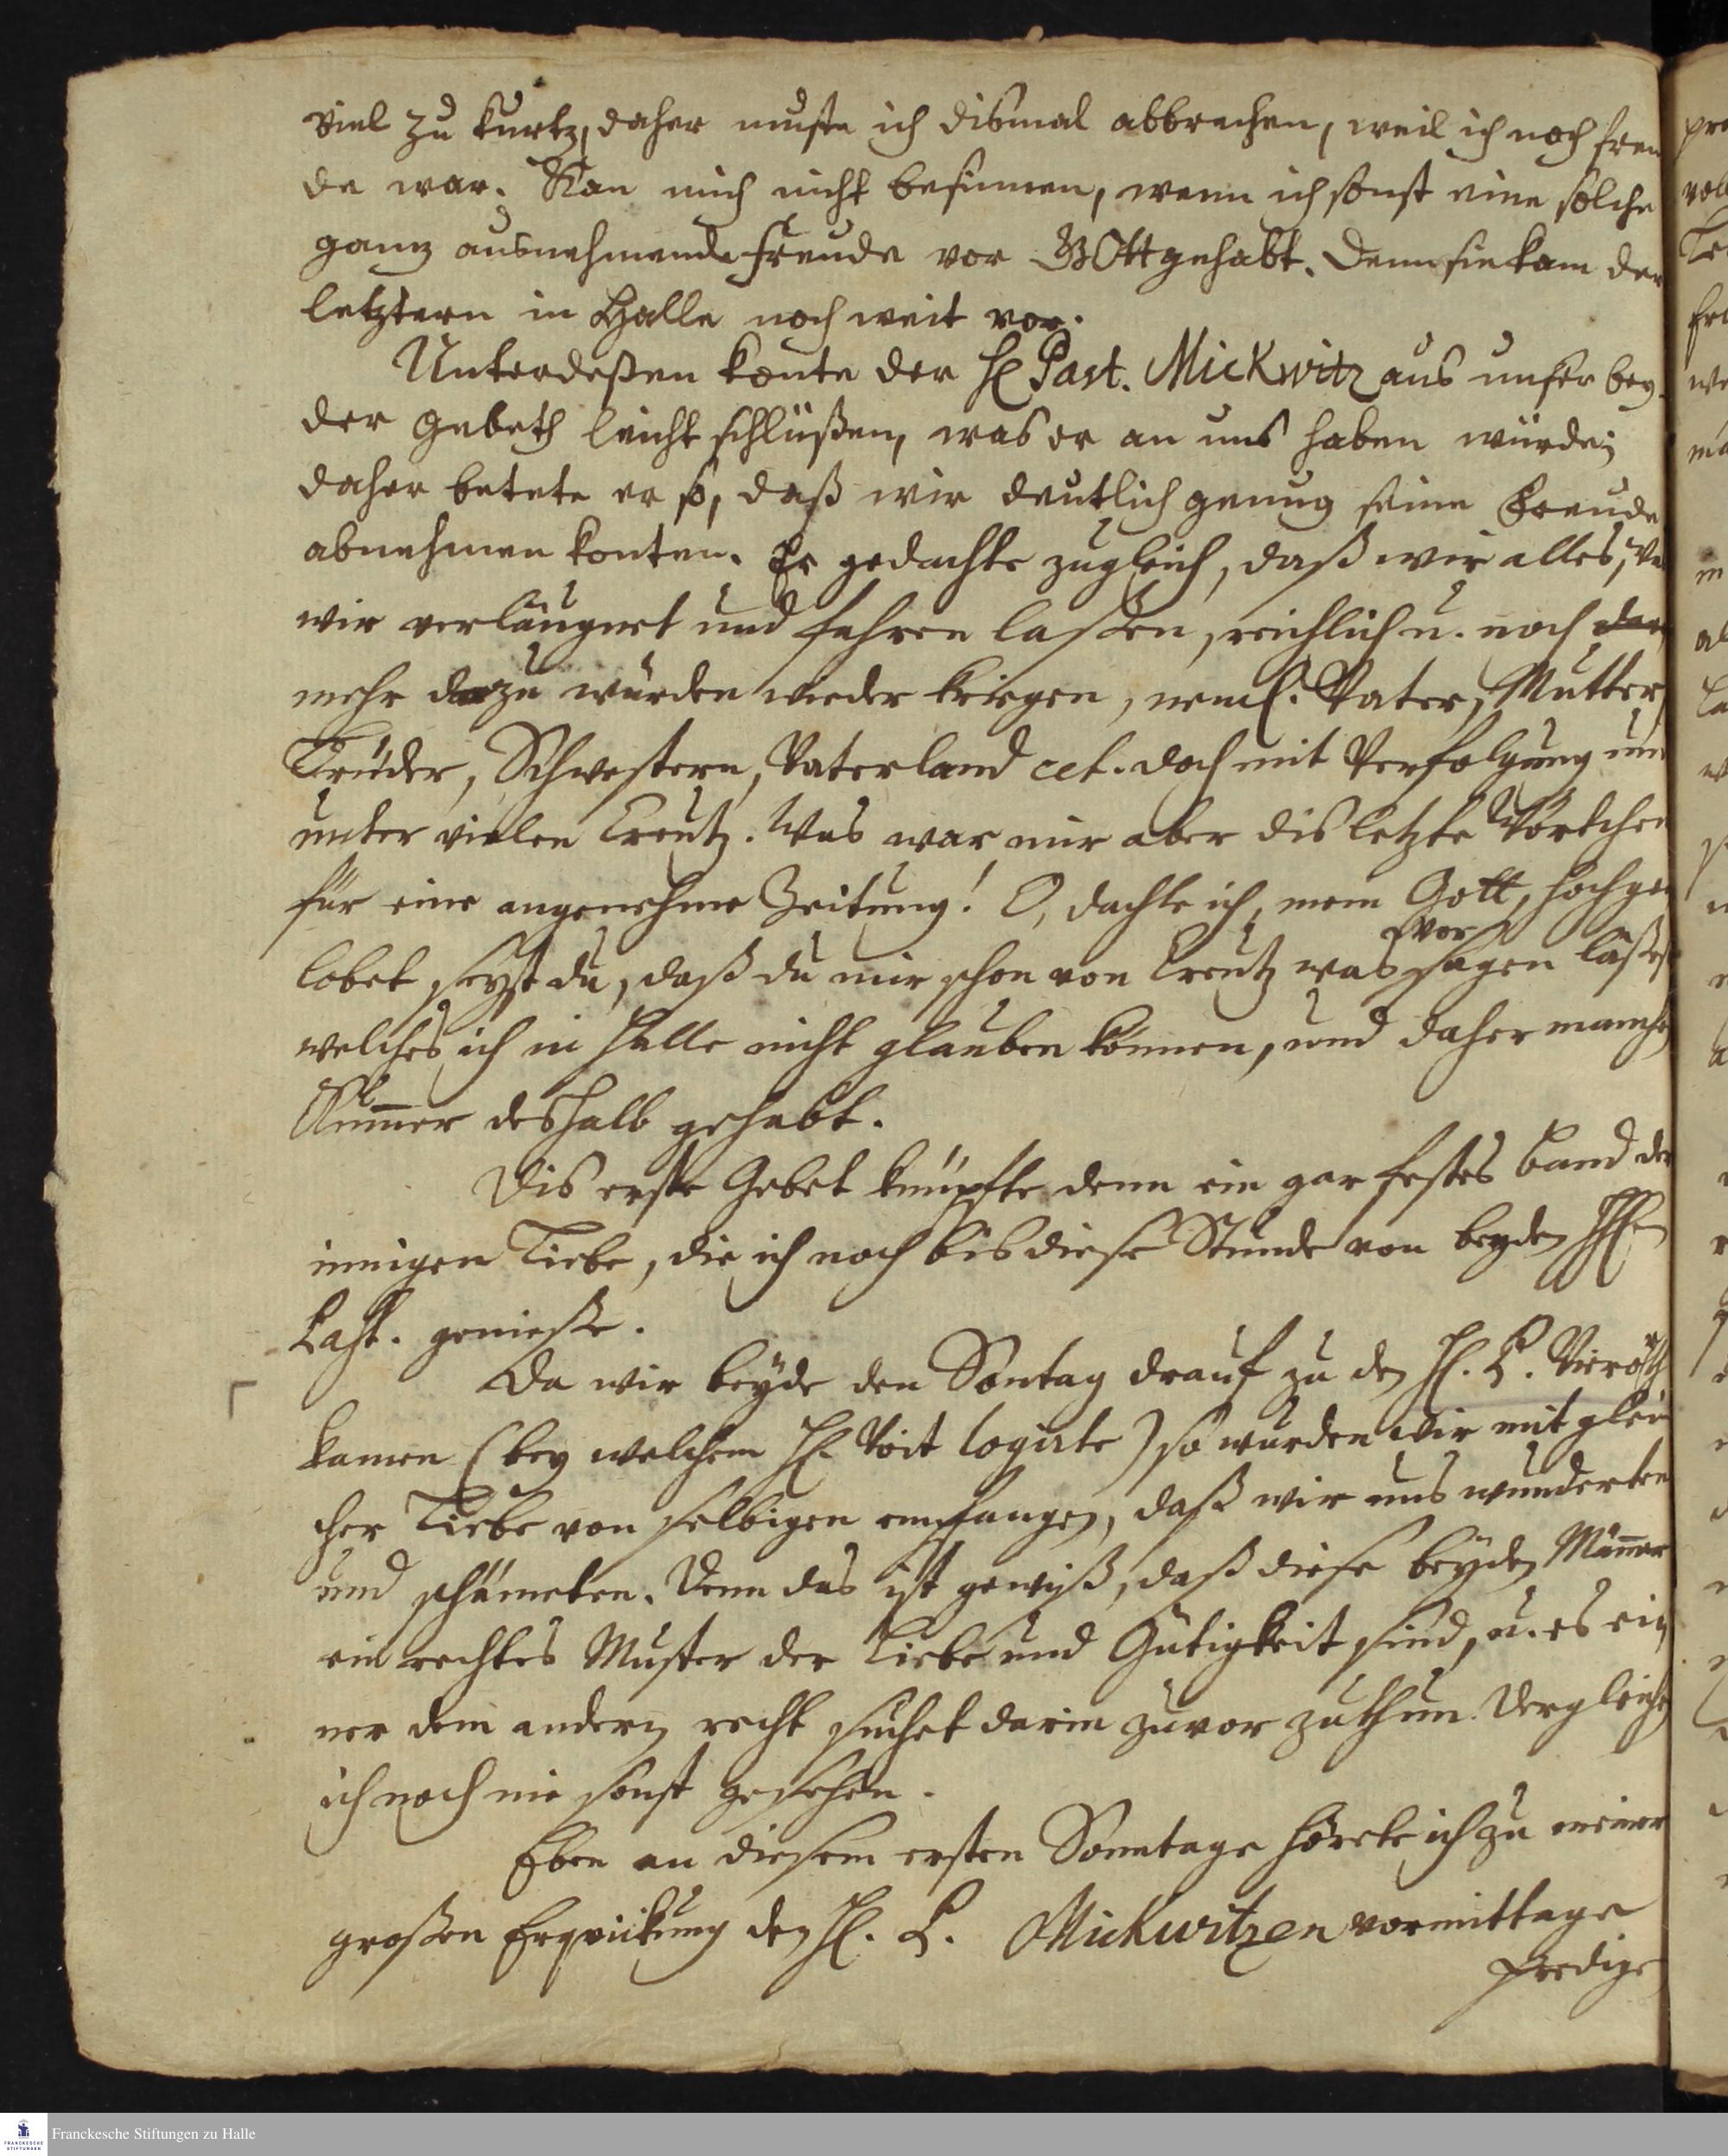 viel zu kurtz, daher muste ich dismal abbrechen, weil ich noch frem
de war. Kan mich nicht besinnen, wenn ich sonst eine solche
ganz ausnehmende Freude vor GOtt gehabt. Denn sie kam der
letztern in Halle noch weit vor.
Unterdeßen konte der H. Past. Mickwitz aus unser bey-
der Gebeth leicht schlüßen, was er an uns haben würde;
daher betete er so, daß wir deutlich genug seine Freude
abnehmen konten. Er gedachte zugleich, daß wir alles, was
wir verläugnet und fahren laßen, reichlich u. noch
mehr dazu würden wieder kriegen, neml. Vater, Mutter,
Brüder, Schwestern, Vaterland cet. doch mit Verfolgung und
unter vielen Creutz. Was war mir aber dis letzte Wörtchen
für eine angenehme Zeitung! O, dachte ich, mein Gott, hochge-
lobet seyst du, daß du mir schon von Creutz was vor sagen läßest
welches ich in Halle nicht glauben können, und daher manchen
Kummer deshalb gehabt.
Dis erste Gebet knüpfte denn ein gar festes Band der
innigen Liebe, die ich noch bis diese Stunde von beyden HH.
Past. genieße.
Da wir beyde den Sontag drauf zu den H. P. Vieroth
kamen (bey welchem H. Voit logirte) so wurden wir mit glei-
cher Liebe von selbigen empfangen, daß wir uns wunderten
und schämeten. Denn das ist gewiß, daß diese beyden Männer
ein rechtes Muster der Liebe und Gütigkeit sind, u. es ei-
ner dem andern recht suchet darin zuvor zuthun. Dergleichen
ich noch nie sonst gesehen.
Eben an diesem ersten Sonntage hörete ich zu meiner
großen Erqvickung den H. P. Mickwitzen vormittage
predige
Franckesche Stiftungen zu Halle